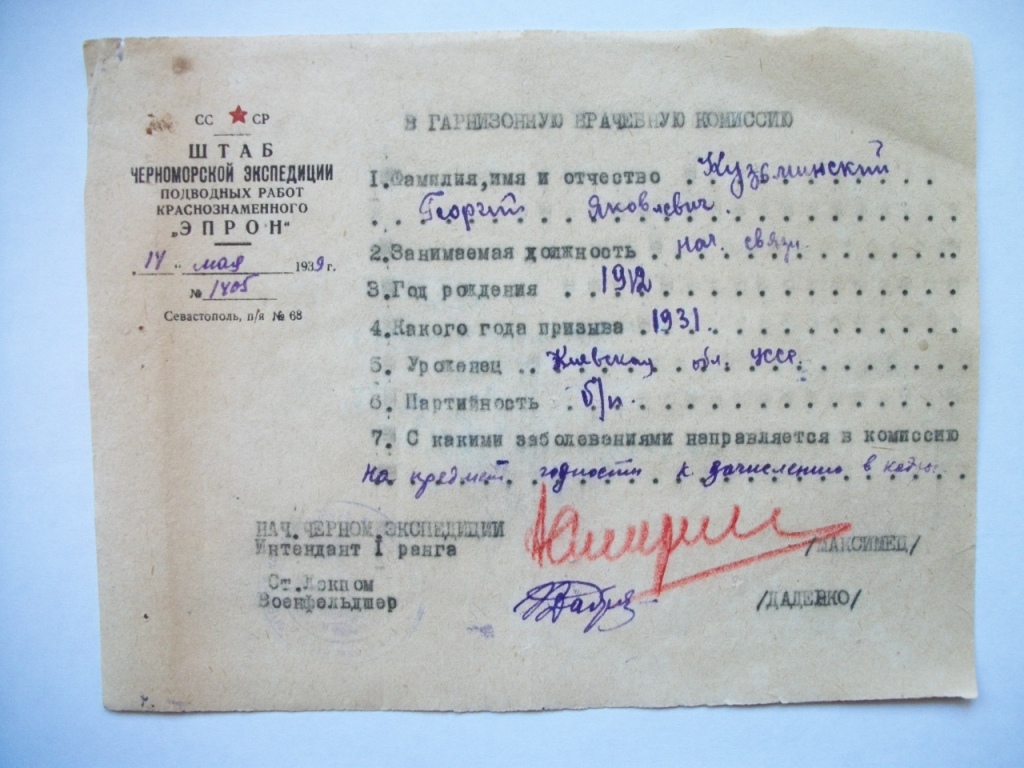 СС СР
ШТАБ
ЧЕРНОМОРСКОЙ ЭКСПЕДИЦИИ
ПОДВОДНЫХ РАБОТ
КРАСНОЗНАМЕННОГО
„ЭПРОН"
14 " мая 1939 г.
№ 1405
Севастополь, п/я № 68
В ГАРНИЗОННУЮ ВРАЧЕБНУЮ КОМИССИЮ
1. Фамилия, имя и отчество . Кузьминский
Георгий Яковлевич.
2. Занимаемая должность . нач. связи.
3. Год рождения . . 1912
4. Какого года призыва . 1931.
5. Уроженец . . Киевской обл. УССР.
6. Партийность . б/п.
7. С какими заболеваниями направляется в комиссию
на предмет годности к зачислению в кадры
НАЧ. ЧЕРНОМ. ЭКСПЕДИЦИИ
Интендант I ранга /МАКСИМЕЦ/
Ст. Лекпом
Военфельдшер /ДАДЕНКО/